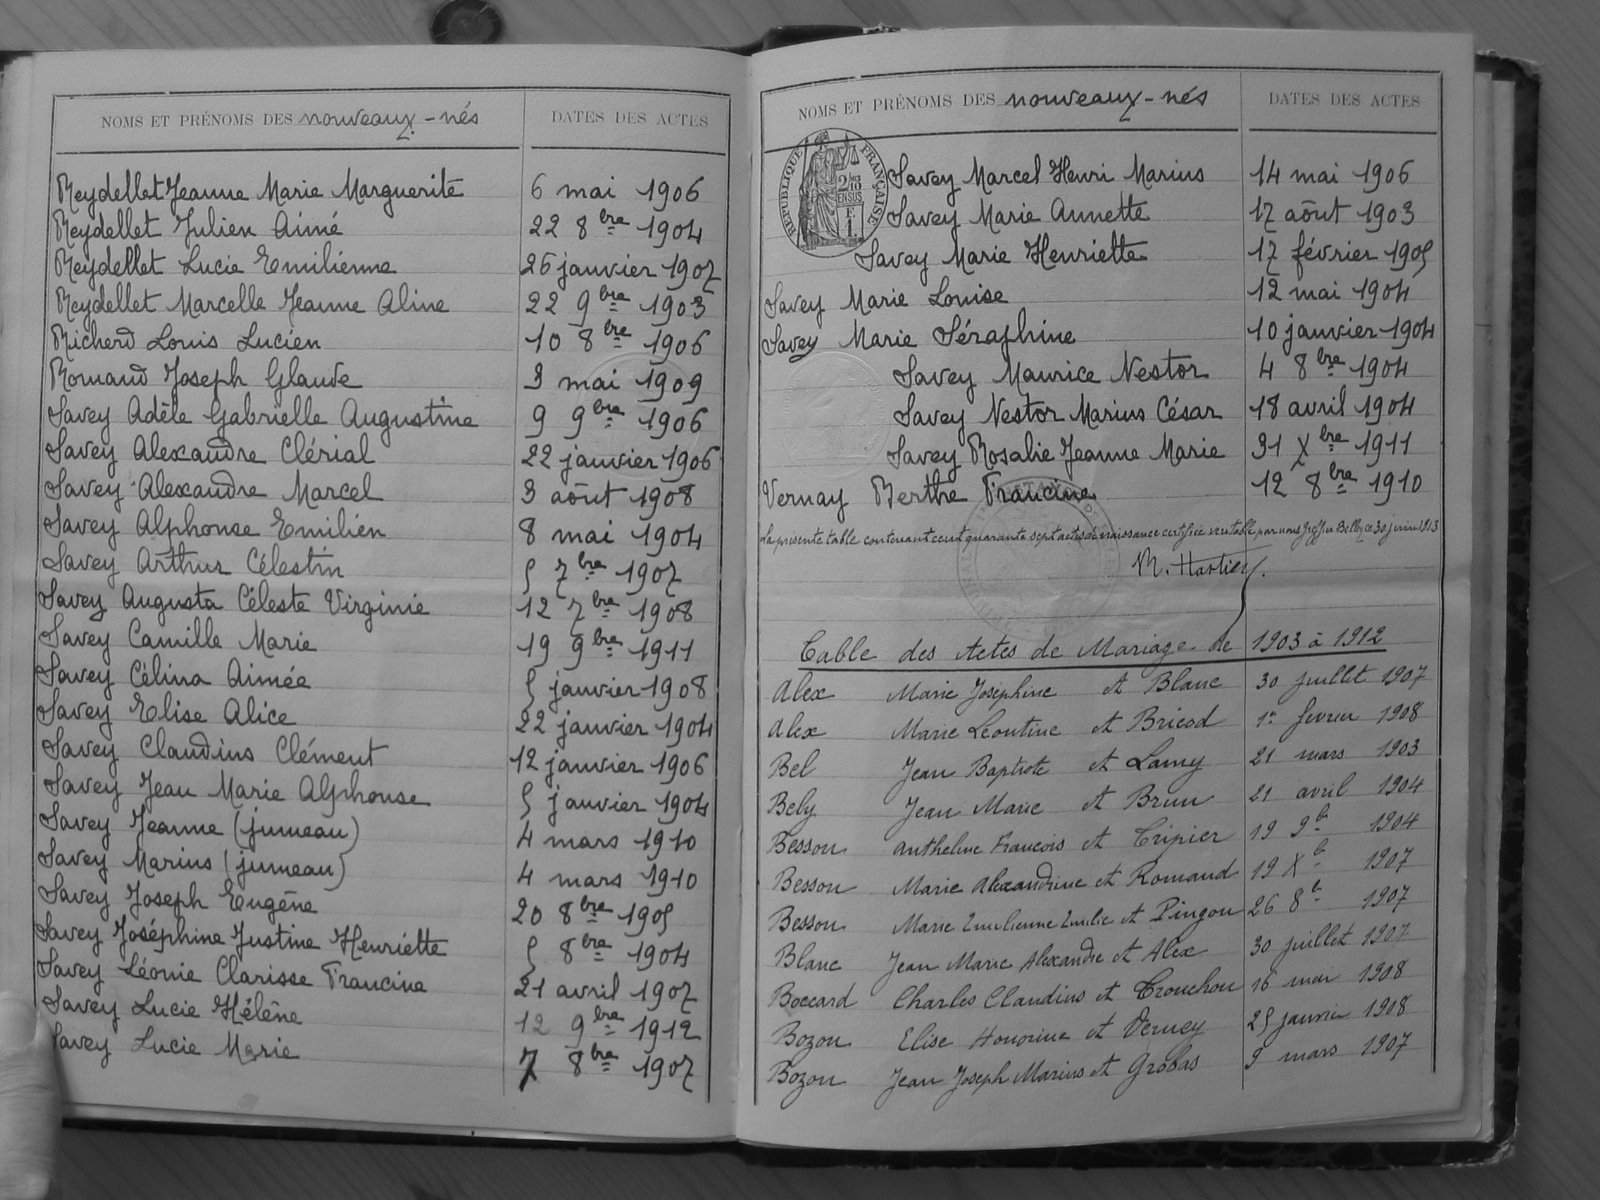 NOMS ET PRÉNOMS DES nouveaux-nés DATES DES ACTES
Reydellet Jeanne Marie Marguerite 6 mai 1906
Reydellet Julien Aimé 22 8bre 1904
Reydellet Lucie Emilienne 26 janvier 1907
Reydellet Marcelle Jeanne Aline 22 9bre 1903
Richerd Louis Lucien 10 8bre 1906
Romand Joseph Glaude 3 mai 1909
Savey Adèle Gabrielle Augustine 9 9bre 1906
Savey Alexandre Clérial 22 janvier 1906
Savey Alexandre Marcel 3 août 1908
Savey Alphonse Emilien 8 mai 1904
Savey Arthur Célestin 5 7bre 1907
Savey Augusta Céleste Virginie 12 7bre 1908
Savey Camille Marie 19 9bre 1911
Savey Célina Aimée 5 janvier 1908
Savey Elise Alice 22 janvier 1904
Savey Claudius Clément 12 janvier 1906
Savey Jean Marie Alphonse 5 janvier 1904
Savey Jeanne (jumeau) 4 mars 1910
Savey Marius (jumeau) 4 mars 1910
Savey Joseph Eugène 20 8bre 1905
Savey Joséphine Justine Henriette 5 8bre 1904
Savey Léonie Clarisse Francine 21 avril 1907
Savey Lucie Hélène 12 9bre 1912
Savey Lucie Marie 7 8bre 1907
NOMS ET PRÉNOMS DES nouveaux-nés DATES DES ACTES
RÉPUBLIQUE FRANÇAISE
2/10 EN SUS
1 F.
Savey Marcel Henri Marius 14 mai 1906
Savey Marie Annette 17 août 1903
Savey Marie Henriette 17 février 1905
Savey Marie Louise 12 mai 1904
Savey Marie Séraphine 10 janvier 1904
Savey Maurice Nestor 4 8bre 1904
Savey Nestor Marius César 18 avril 1904
Savey Rosalie Jeanne Marie 31 Xbre 1911
Vernay Berthe Francine 12 8bre 1910
La présente table contenant cent quarante sept actes de naissance certifiée véritable par nous Greffier Belley ce 30 juin 1913
Table des Actes de Mariage de 1903 à 1912
Alex Marie Joséphine et Blanc 30 juillet 1907
Alex Marie Léontine et Bricod 1er fevrier 1908
Bel Jean Baptiste et Lamy 21 mars 1903
Bely Jean Marie et Brun 21 avril 1904
Besson Anthelme Francois et Tripier 19 9b 1904
Besson Marie Alexandrine et Romand 19 Xb 1907
Besson Marie Emilienne Emilie et Pingon 26 8b 1907
Blanc Jean Marie Alexandre et Alex 30 juillet 1907
Boccard Charles Claudius et Trouchon 16 mai 1908
Bozon Elise Honorine et Verney 25 janvier 1908
Bozon Jean Joseph Marius et Grobas 9 mars 1907